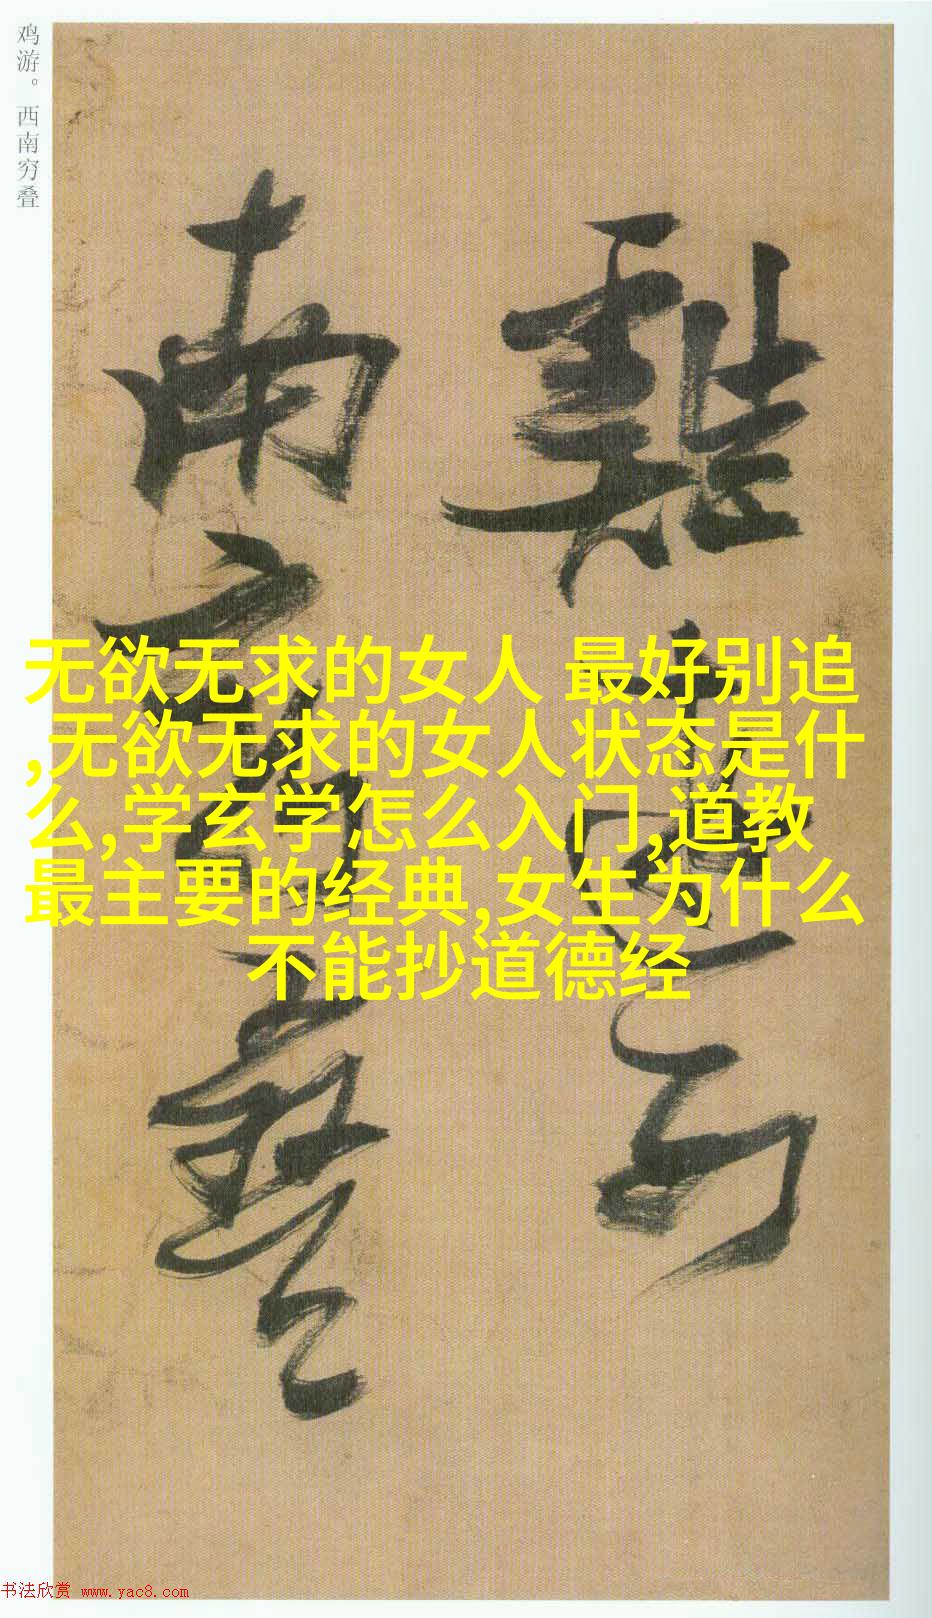 鸡游。西南穷叠
雞遊西
南窮疊
无欲无求的女人 最好别追
,无欲无求的女人状态是什
么,学玄学怎么入门,道教
最主要的经典,女生为什么
不能抄道德经
书法欣赏 www.yac8.com